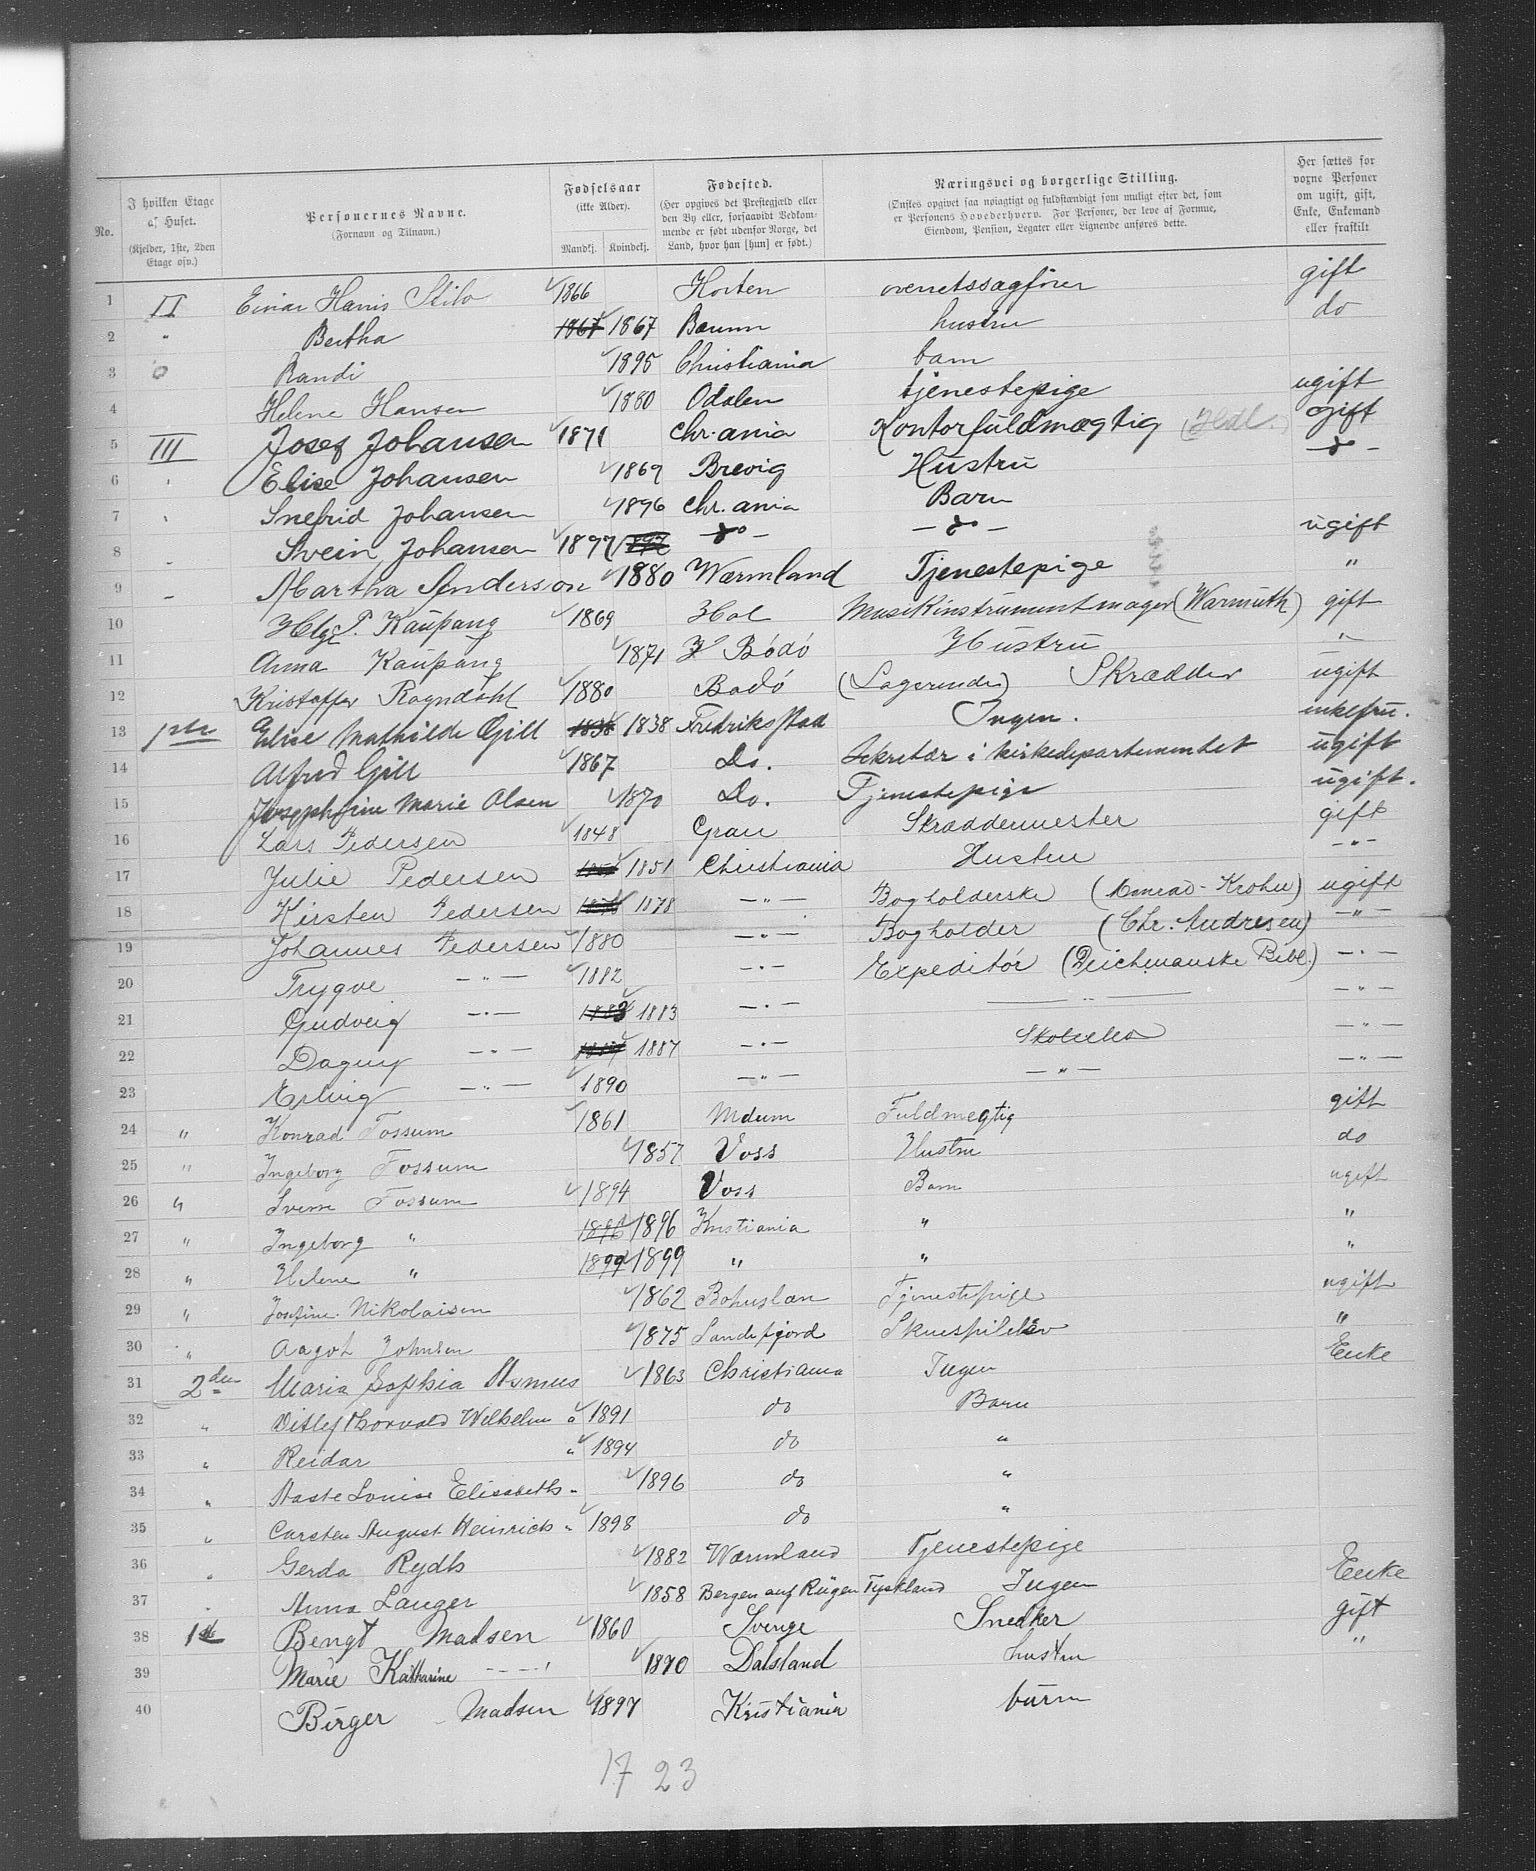 No.
I hvilken Etage af Huset.
(Kjelder, 1ste, 2den Etage osv.)
Personernes Navne.
(Fornavn og Tilnavn.)
Fødselsaar
(ikke Alder).
Mandkj. Kvindekj.
Fødested.
(Her opgives det Prestegjæld eller den By eller, forsaavidt Vedkommende er født udenfor Norge, det Land, hvor han [hun] er født.)
Næringsvei og borgerlige Stilling.
(Ønskes opgivet saa nøiagtigt og fuldstændigt som muligt efter det, som er Personens Hovederhverv. For Personer, der leve af Formue, Eiendom, Pension, Legater eller Lignende anføres dette.
Her sættes for voxne Personer om ugift, gift, Enke, Enkemand eller fraskilt
1 II Einar Hans 1866 Horten overretssagfører gift
2 " Bertha 1867 1867 Bærum hustru do
3 Randi 1895 Christiania barn
4 Helene Hansen 1880 Odalen tjenestepige ugift
5 III Josef Johansen 1871 Chr.ania Kontorfuldmægtig gift
6 Elise Johansen 1869 Brevig Hustru - do -
7 Snefrid Johansen 1896 Chr. ania Barn
8 Svein Johansen 1897 - do - - do - ugift
9 Martha Anderson 1880 Wærmland Tjenestepige "
10 Helge P. Kaupang 1869 Hol Musikinstrumentmager (Warmuth) gift
11 Anna Kaupang 1871 Bodö Hustru "
12 Kristoffer Rogndahl 1880 Bodö Skrædder ugift
13 Elise Mathilde Gill 1838 1838 Fredriksstad Ingen. enkefru.
14 Alfred Gill 1867 Do. Sekretær i kirkedepartementet ugift
15 Josephine Marie Olsen 1870 Do. Tjenestepige ugift.
16 Lars Pedersen 1848 Gran Skræddermester gift
17 Julie Pedersen 1851 1851 Christiania Hustru - " -
18 Kirsten Pedersen 1878 1878 - " - Bogholderske (Conrad Krohn) ugift
19 Johannes Pedersen 1880 - " - Bogholder (Chr. Andresen) - " -
20 Trygve - " - 1882 - " - Expeditör (Deichmanske Bibl.) - " -
21 Gudveig - " - 1883 1883 - " - - " - - " -
22 Dagny - " - 1887 1887 - " - Skoleelev - " -
23 Erling - " - 1890 - " - - " - - " -
24 " Konrad Fossum 1861 Modum Fuldmegtig gift
25 " Ingeborg Fossum 1857 Voss Hustru do
26 " Sverre Fossum 1894 Voss Barn ugift
27 " Ingeborg " 1896 1896 Kristiania " "
28 " Helene " 1899 1899 " " "
29 " Josefine Nikolaisen 1862 Bohuslän Tjenestepige ugift
30 " Aagot Johnsen 1875 Sandefjord "
31 2den Maria Sophia Asmus 1863 Christiania Ingen Enke
32 " Ditlef Thorvald Wilhelm " 1891 do Barn
33 " Reidar " 1894 do "
34 " Aaste Louise Elisabeth " 1896 do "
35 " Carsten August Heinrich " 1898 do "
36 " Gerda Rydh 1882 Wærmland Tjenestepige
37 Anna Langer 1858 Bergen auf Rügen Tyskland Ingen Enke
38 1ste Bengt Madsen 1860 Sverge Snedker gift
39 Marie Katharine - - - 1870 Dalsland hustru "
40 Birger Madsen 1897 Kristiania barn
17 23